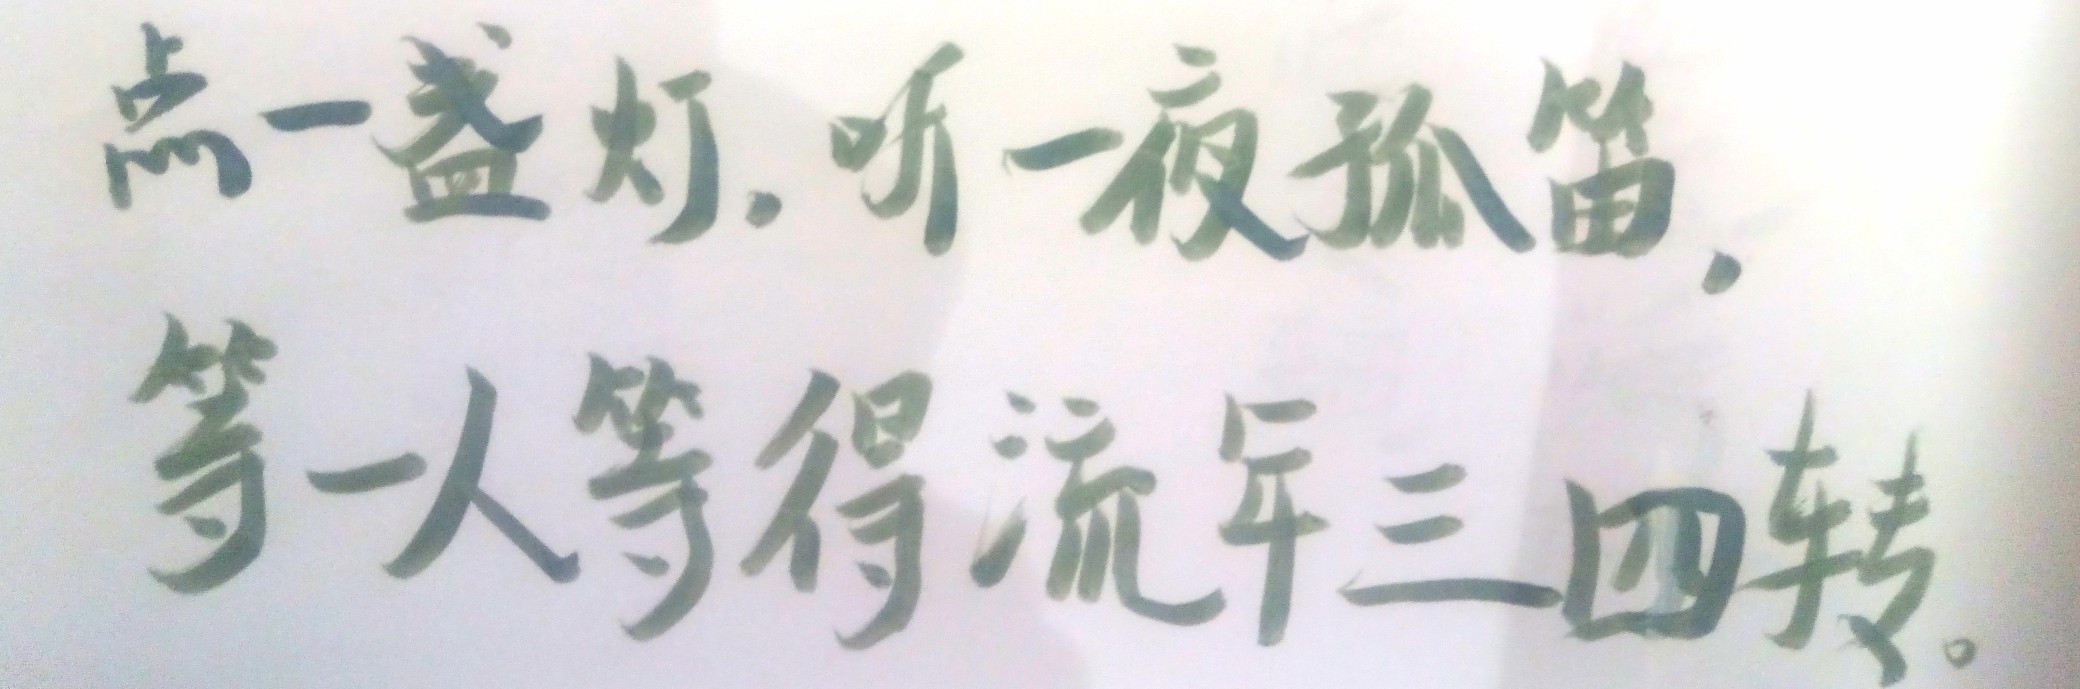 点一盏灯，听一夜孤笛，
等一人等得流年三四转。